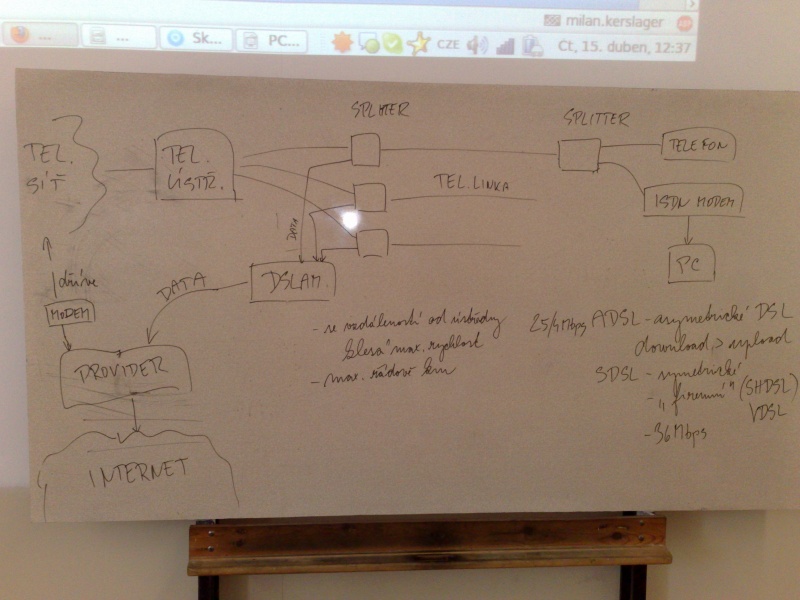 milan.kerslager
...
...
Sk...
PC...
CZE
Čt, 15. duben, 12:37
SPLITTER
SPLITTER
TEL.
SÍŤ
TEL.
ÚSTŘ.
TELEFON
TEL. LINKA
ISDN MODEM
DATA
PC
dříve
MODEM
DATA
DSLAM
PROVIDER
INTERNET
- se vzdáleností od ústředny
klesá max. rychlost
- max. řádově km
25/4Mbps ADSL - asymetrické DSL
download > upload
SDSL - symetrické
- "firemní" (SHDSL)
VDSL
- 36Mbps